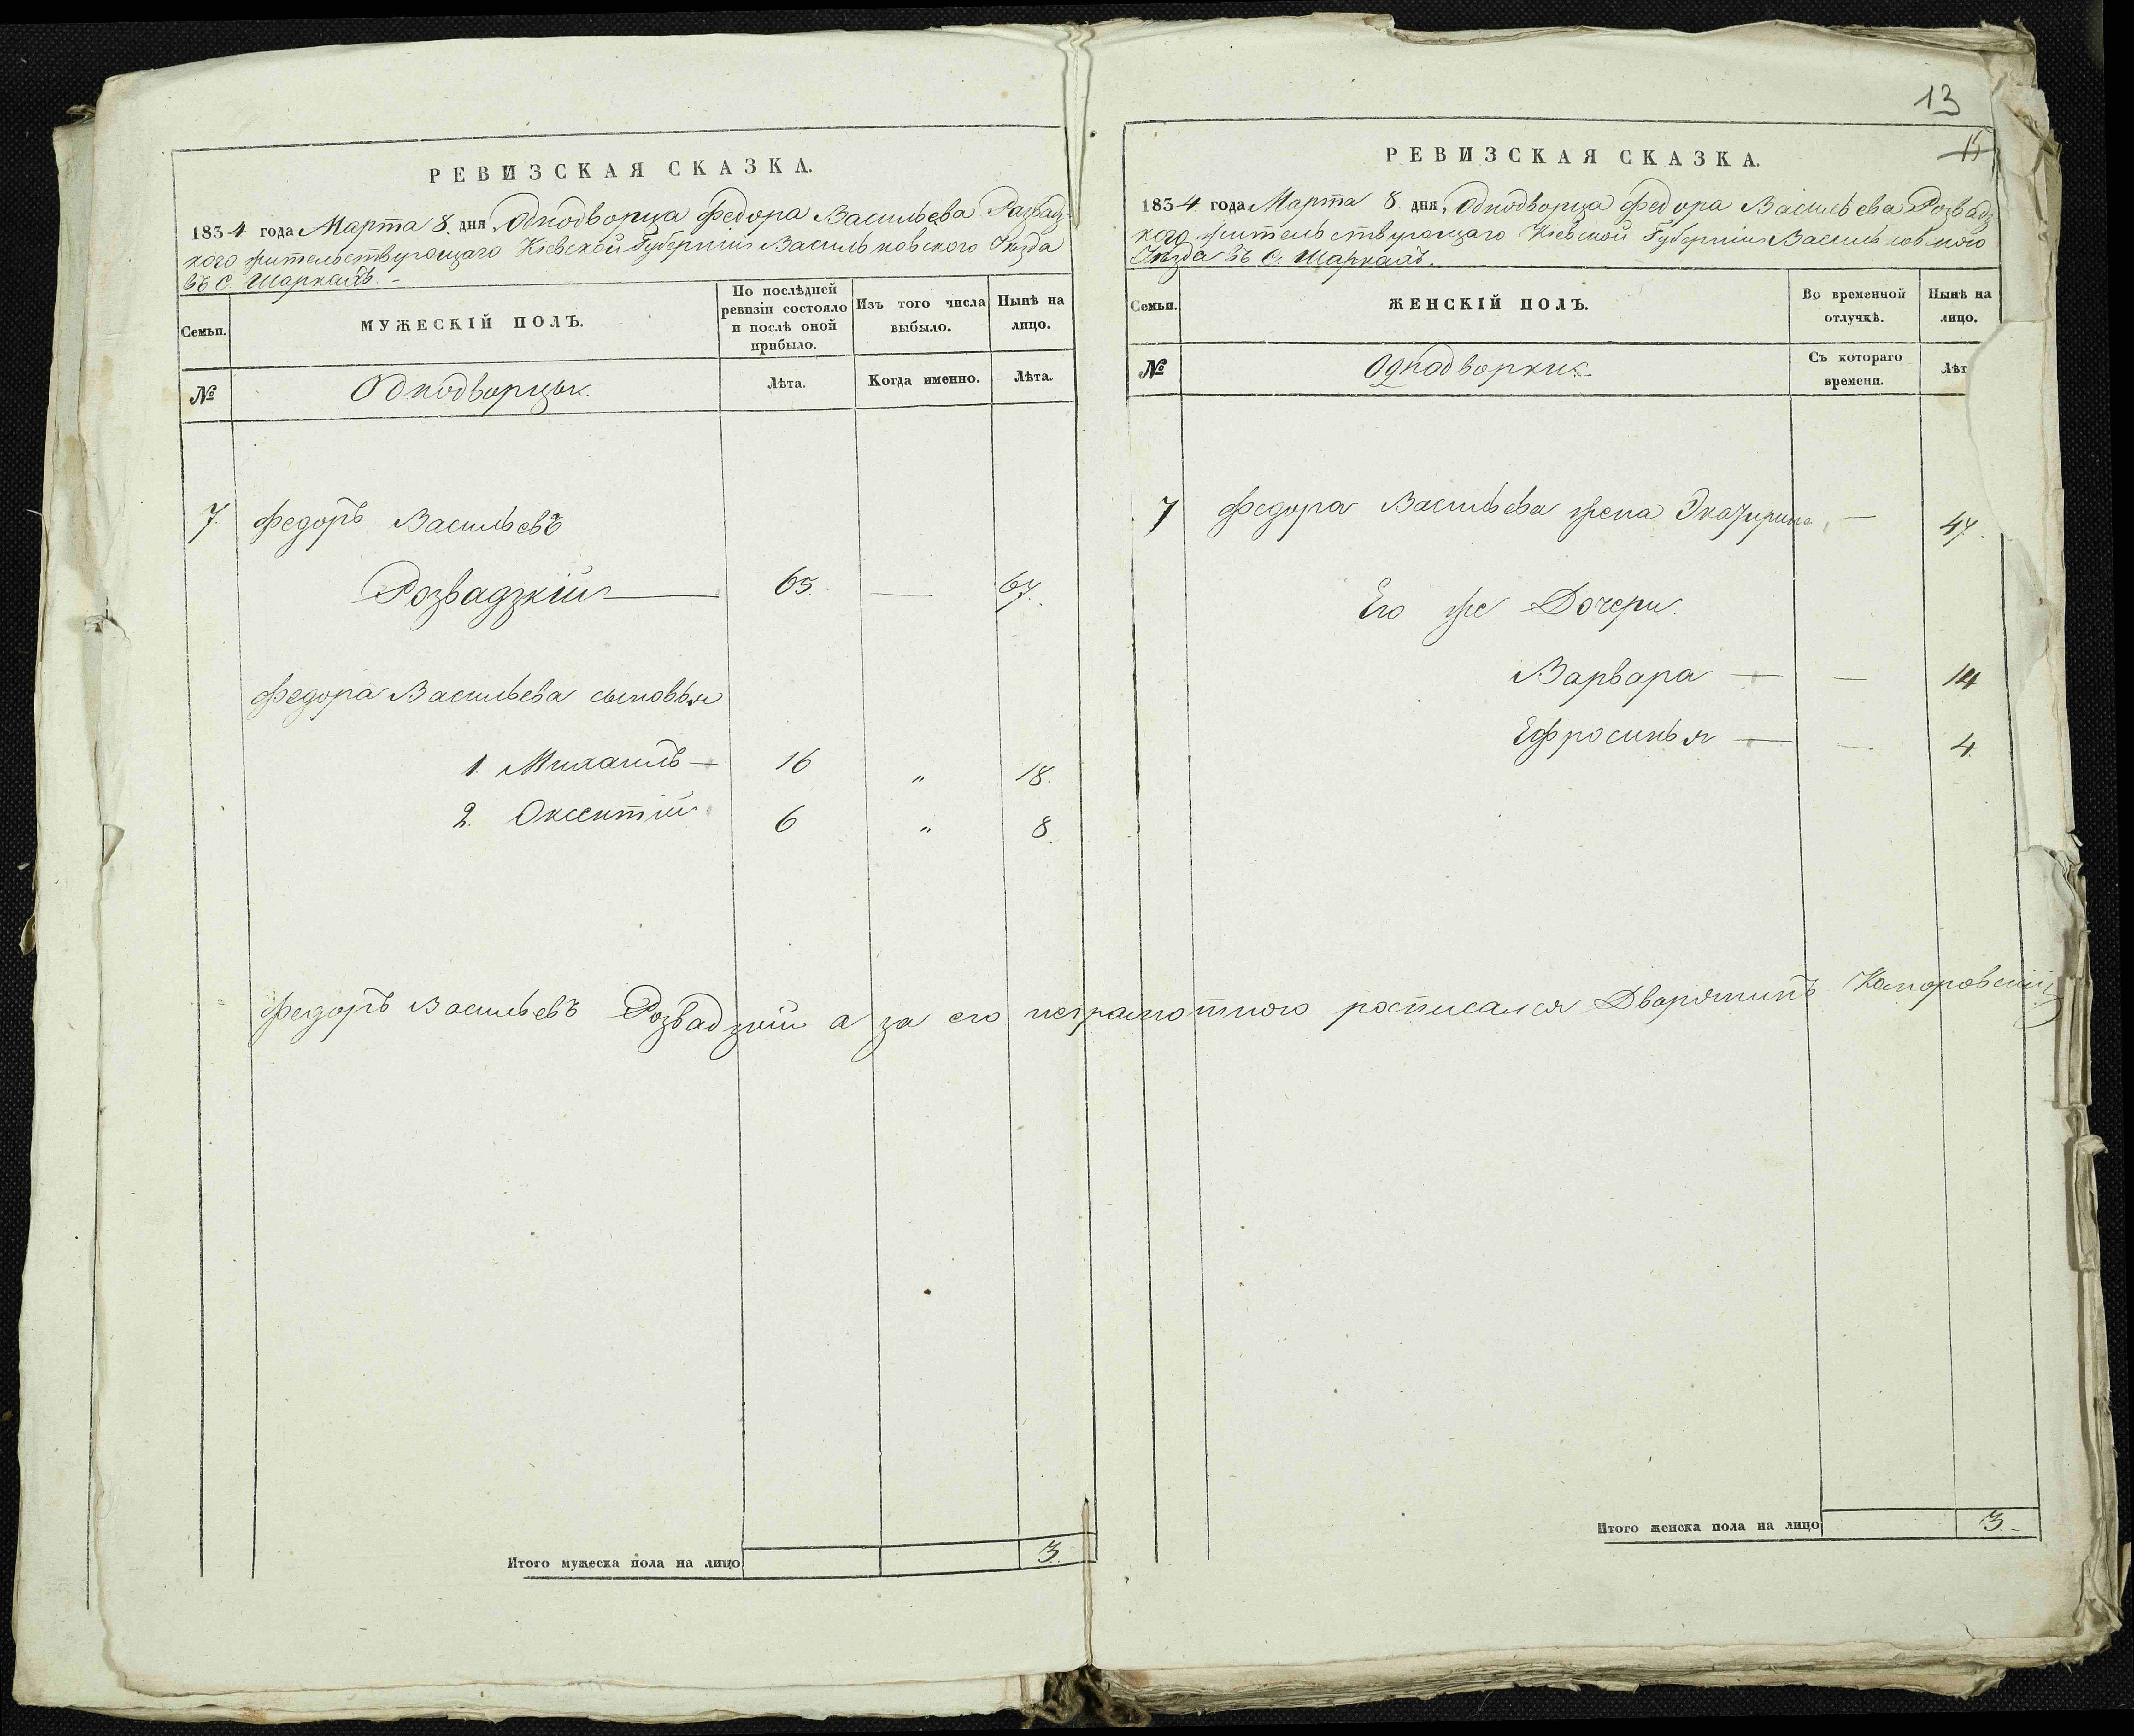 13
15
РЕВИЗСКАЯ СКАЗКА.
1834 года Марта 8. дня, Однодворца Федора Васильева Развадз-
кого жительствующаго Кіевской Губерніи Васильковского Уѣзда
въ с. Шаркахъ. -
Семьи.
МУЖЕСКІЙ ПОЛЪ.
По послѣдней ревизіи состояло и послѣ оной прибыло.
Изъ того числа выбыло.
Нынѣ на лицо.
№
Однодворцы.
Лѣта.
Когда именно.
Лѣта.
7. Федоръ Васильевъ
Розвадзкій — 65. — 67.
Федора Васильева сыновья
1. Михаилъ — 16 " 18.
2. Оксентій 6 " 8.
Итого мужеска пола на лицо 3.
РЕВИЗСКАЯ СКАЗКА.
1834 года Марта 8. дня, Однодворца Федора Васильева Розвадз
кого жительствующаго Кіевской Губерніи Васильковского
Уѣзда въ с. Шаркахъ.
Семьи.
ЖЕНСКІЙ ПОЛЪ.
Во временной отлучкѣ.
Нынѣ на лицо.
№
Однодворки.
Съ котораго времени.
Лѣт
7 Федора Васильева жена Экатирина, — 47.
Его же Дочери.
Варвара — — 14
Ефросинья — — 4.
Федоръ Васильевъ Розвадзкій а за его неграмотного росписался Дворянинъ
Итого женска пола на лицо 3.